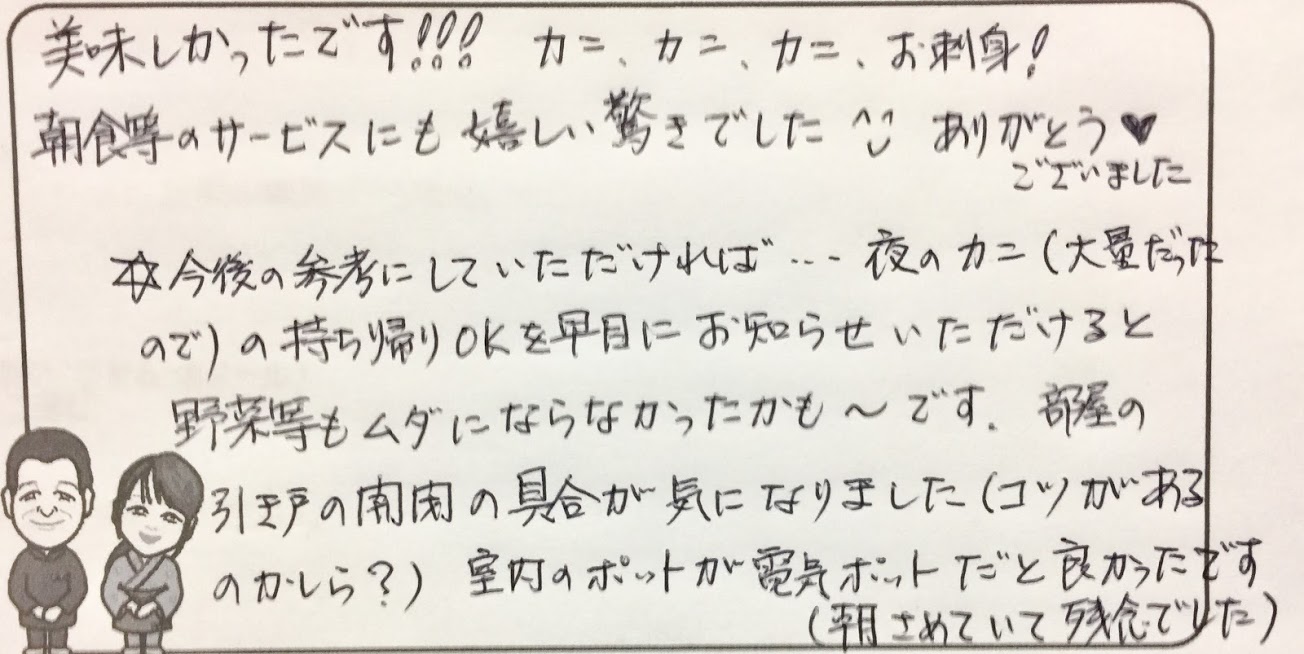 美味しかったです!!! カニ、カニ、カニ、お刺身!
朝食等のサービスにも嬉しい驚きでした ありがとう♥
ございました
☆今後の参考にしていただければ… 夜のカニ(大量だった
ので)の持ち帰りOKを早目にお知らせいただけると
野菜等もムダにならなかったかも〜です. 部屋の
引き戸の開閉の具合が気になりました(コツがある
のかしら?) 室内のポットが電気ポットだと良かったです
(朝さめていて残念でした)